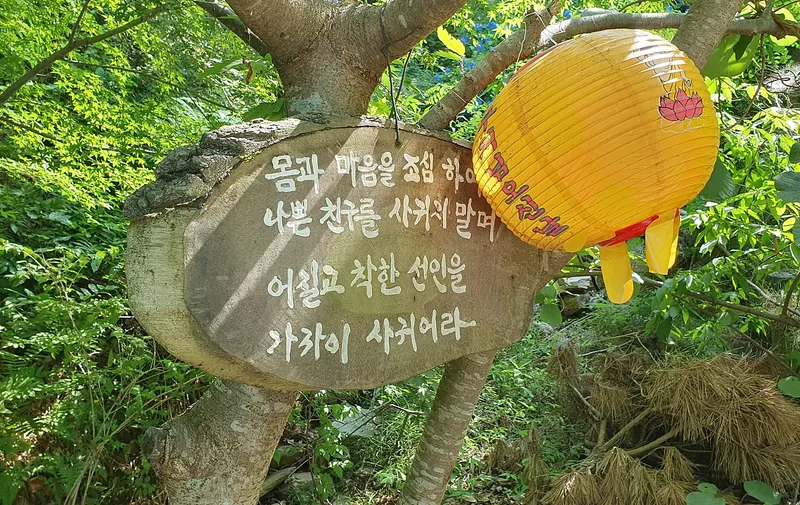 몸과 마음을 조심
나쁜 친구를 사귀지 말며
어질고 착한 선인을
가까이 사귀어라